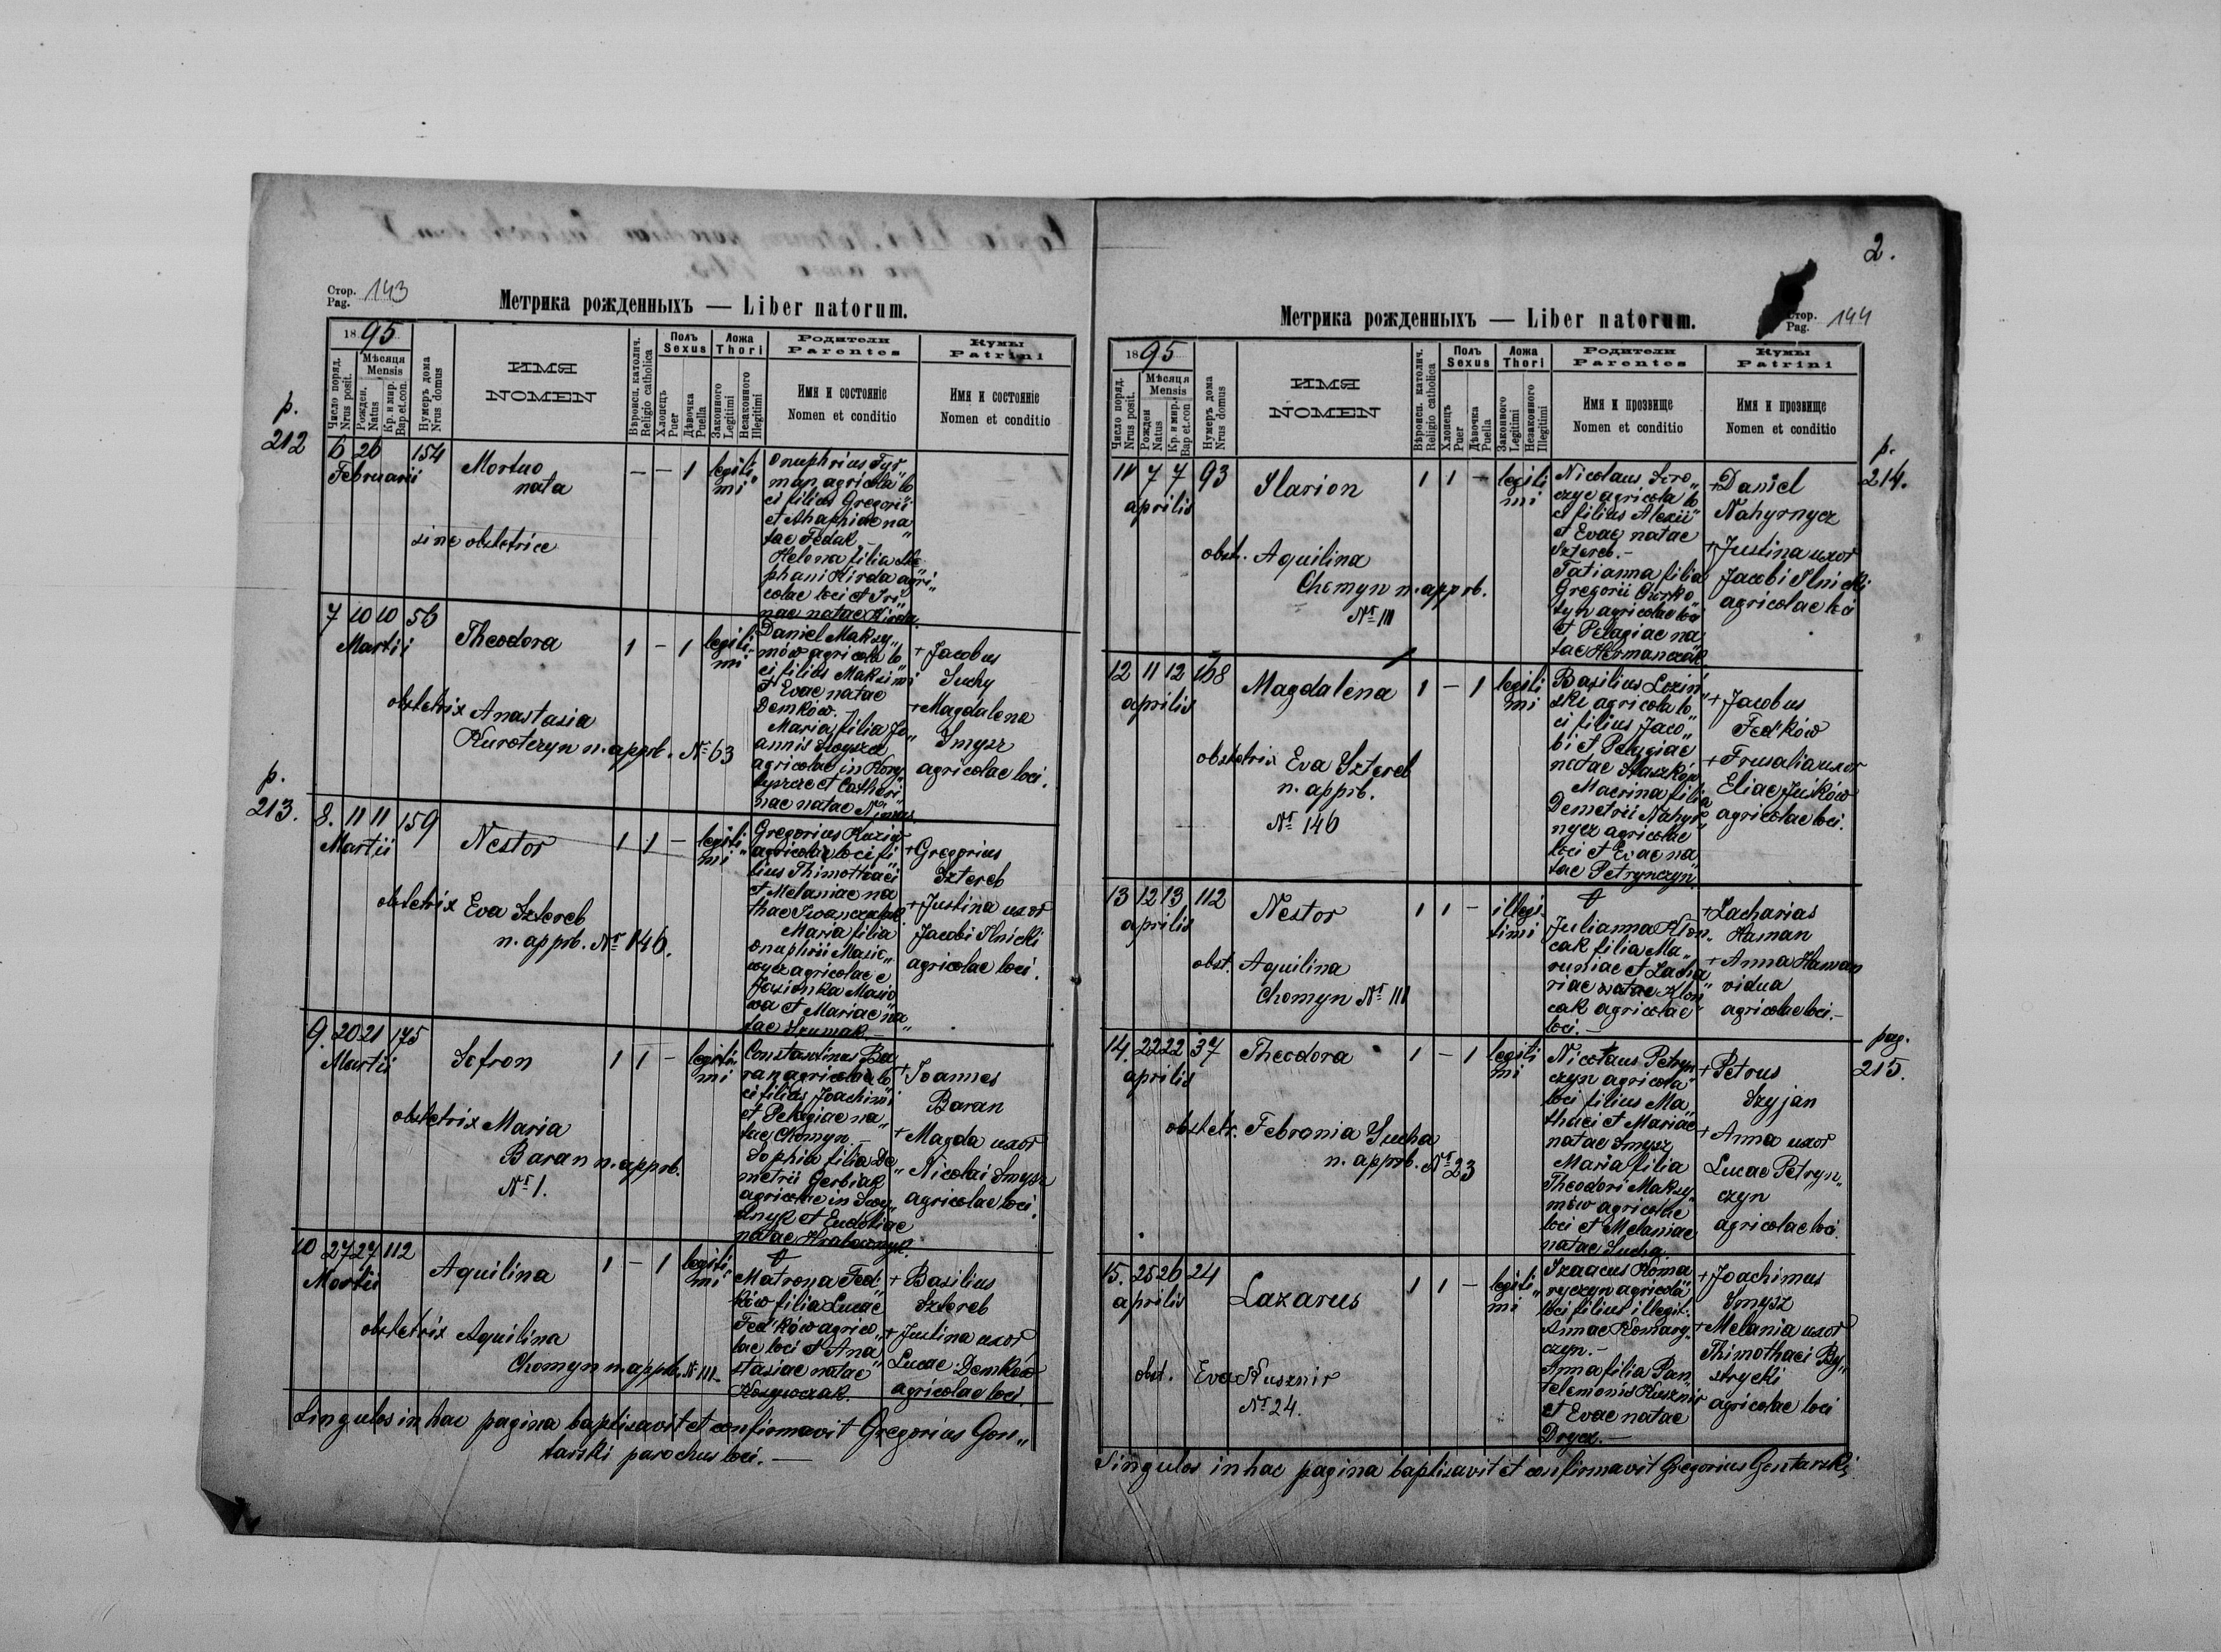 2.
Стор. Pag. 143
Метрика рожденныхъ — Liber natorum.
1895
Число поряд. Nrus posit.
Мѣсяця Mensis
Рожден. Natus
Кр. и мир. Bap et.con.
Нумеръ дома Nrus domus
ИМЯ
NOMEN
Вѣроисп. католич. Religio catholica
Полъ Sexus
Хлопецъ Puer
Дѣвочка Puella
Ложа Thori
Законного Legitimi
Незаконного Illegitimi
Родители
Parentes
Имя и состоянiе
Nomen et conditio
Кумы
Patrini
Имя и состоянiе
Nomen et conditio
p.
212
6 26 154
Februarii
Mortuo
nata
sine obstetrice
— — 1
legiti„
mi
Onuphrius Tyr„
man agricola lo„
ci filius Gregorii
et Ahaphiae na„
tae Fedak —
Helena filia Ste„
phani Hirda agri„
colae loci et Iri„
nae natae Hirda.
7 10 10 56
Martii
Theodora
obstetrix Anastasia
Kuroteryn n. apprb. Nr 63
1 — 1
legiti„
mi
Daniel Maksy„
mów agricola lo„
ci filius Maksimi
et Evae natae
Demków. —
Maria filia Jo„
annis
agricolae in
et Cathari„
nae natae
+ Jacobus
Suchy
+ Magdalena
Smysz
agricolae loci.
p.
213.
8. 11 11 159
Martii
Nestor
obstetrix Eva Sztereb
n. apprb. Nr 146.
1 1 —
legiti„
mi
Gregorius Kuziw
agricola loci fi„
lius Thimothaei
et Melaniae na„
thae Iwanczak
Maria filia
Onuphrii Masic„
wycz agricolae e
Jasionka Masio„
wa et Mariae na„
tae Szumak.
+ Gregorius
Sztereb
+ Justina uxor
Jacobi Ilnicki
agricolae loci.
9. 20 21 175
Martii
Sofron
obstetrix Maria
Baran n. apprb.
Nr 1.
1 1 —
legiti„
mi
Constantinus Ba„
ran agricola lo„
ci filius Joachimi
et Pelagiae na„
tae Chomyn. —
Sophia filia De„
metrii Gerbiak
agricolae in
et Eudokiae
natae
+ Joannes
Baran
+ Magda uxor
Nicolai Smysz
agricolae loci.
10 27 27 112
Martii
Aquilina
obstetrix Aquilina
Chomyn n. apprb. Nr 111.
1 — 1
legiti„
mi
Matrona Fed„
ków filia Lucae
Fed'ków agrico„
lae loci et Ana„
stasiae natae
+ Basilius
Sztereb
+ Justina uxor
Lucae Demków
agricolae loci.
Singulos in hac pagina baptisavit et confirmavit Gregorius Gon„
tarski parochus loci. —
Стор. Pag. 144
Метрика рожденныхъ — Liber natorum.
1895
Число поряд. Nrus posit.
Мѣсяця Mensis
Рожден Natus
Кр. и мир. Bap et.con
Нумеръ дома Nrus domus
ИМЯ
NOMEN
Вѣроисп. католич. Religio catholica
Полъ Sexus
Хлопецъ Puer
Дѣвочка Puella
Ложа Thori
Законного Legitimi
Незаконного Illegitimi
Родители
Parentes
Имя и прозвище
Nomen et conditio
Кумы
Patrini
Имя и прозвище
Nomen et conditio
p.
214.
11 7 7 93
aprilis
Ilarion
obst. Aquilina
Chomyn n. apprb.
Nr 111
1 1 —
legiti
mi
Nicolaus
agricola lo
ci filius Alexii
et Evae natae
Sztereb. —
Tatianna filia
Gregorii
agricolae loci
et Pelagiae na„
tae Hermanczak
+ Daniel
Nahyrnycz
+ Justina uxor
Jacobi Ilnicki
agricolae loci
12 11 12 168
aprilis
Magdalena
obstetrix Eva Sztereb
n. apprb.
Nr 146
1 — 1
legiti
mi
Basilius Lozin„
ski agricola lo
ci filius Jaco„
bi et Pelagiae
natae Staszków
Macrina filia
Demetrii Nahyr„
nycz agricolae
loci et Evae na„
tae Petrynczyn.
+ Jacobus
Fed'ków
+ Frusalia uxor
Eliae Juśków
agricolae loci.
13 12 13 112
aprilis
Nestor
obst. Aquilina
Chomyn Nr 111
1 1 —
illegi„
timi
Julianna Klon„
cak filia Ma„
runiae et Zacha„
riae natae Klon„
cak agricolae
loci. —
+ Zacharias
Haman
+ Anna Haman
vidua
agricolae loci. —
pag.
215.
14. 22 22 37
aprilis
Theodora
obstetr. Febronia Sucha
n. apprb. Nr 23
1 — 1
legiti
mi
Nicolaus Petryn„
czyn agricola
loci filius Ma„
thaei et Mariae
natae Smysz
Maria filia
Theodori Maksy„
mów agricolae
loci et Melaniae
natae Sucha.
+ Petrus
Szyjan
+ Anna uxor
Lucae Petryn„
czyn
agricolae loci.
15. 25 26 24
aprilis
Lazarus
obst. Eva Kusznir
Nr 24.
1 1 —
legiti„
mi
Izaacus Koma„
ryczyn agricola
loci filius illegit.
Annae Komary„
czyn. —
Anna filia Pan„
telemonis Kusznir
et Evae natae
Drycz. —
+ Joachimus
Smysz
+ Melania uxor
Thimothaei By„
strycki
agricolae loci
Singulos in hac pagina baptisavit et confirmavit Gregorius Gontarski